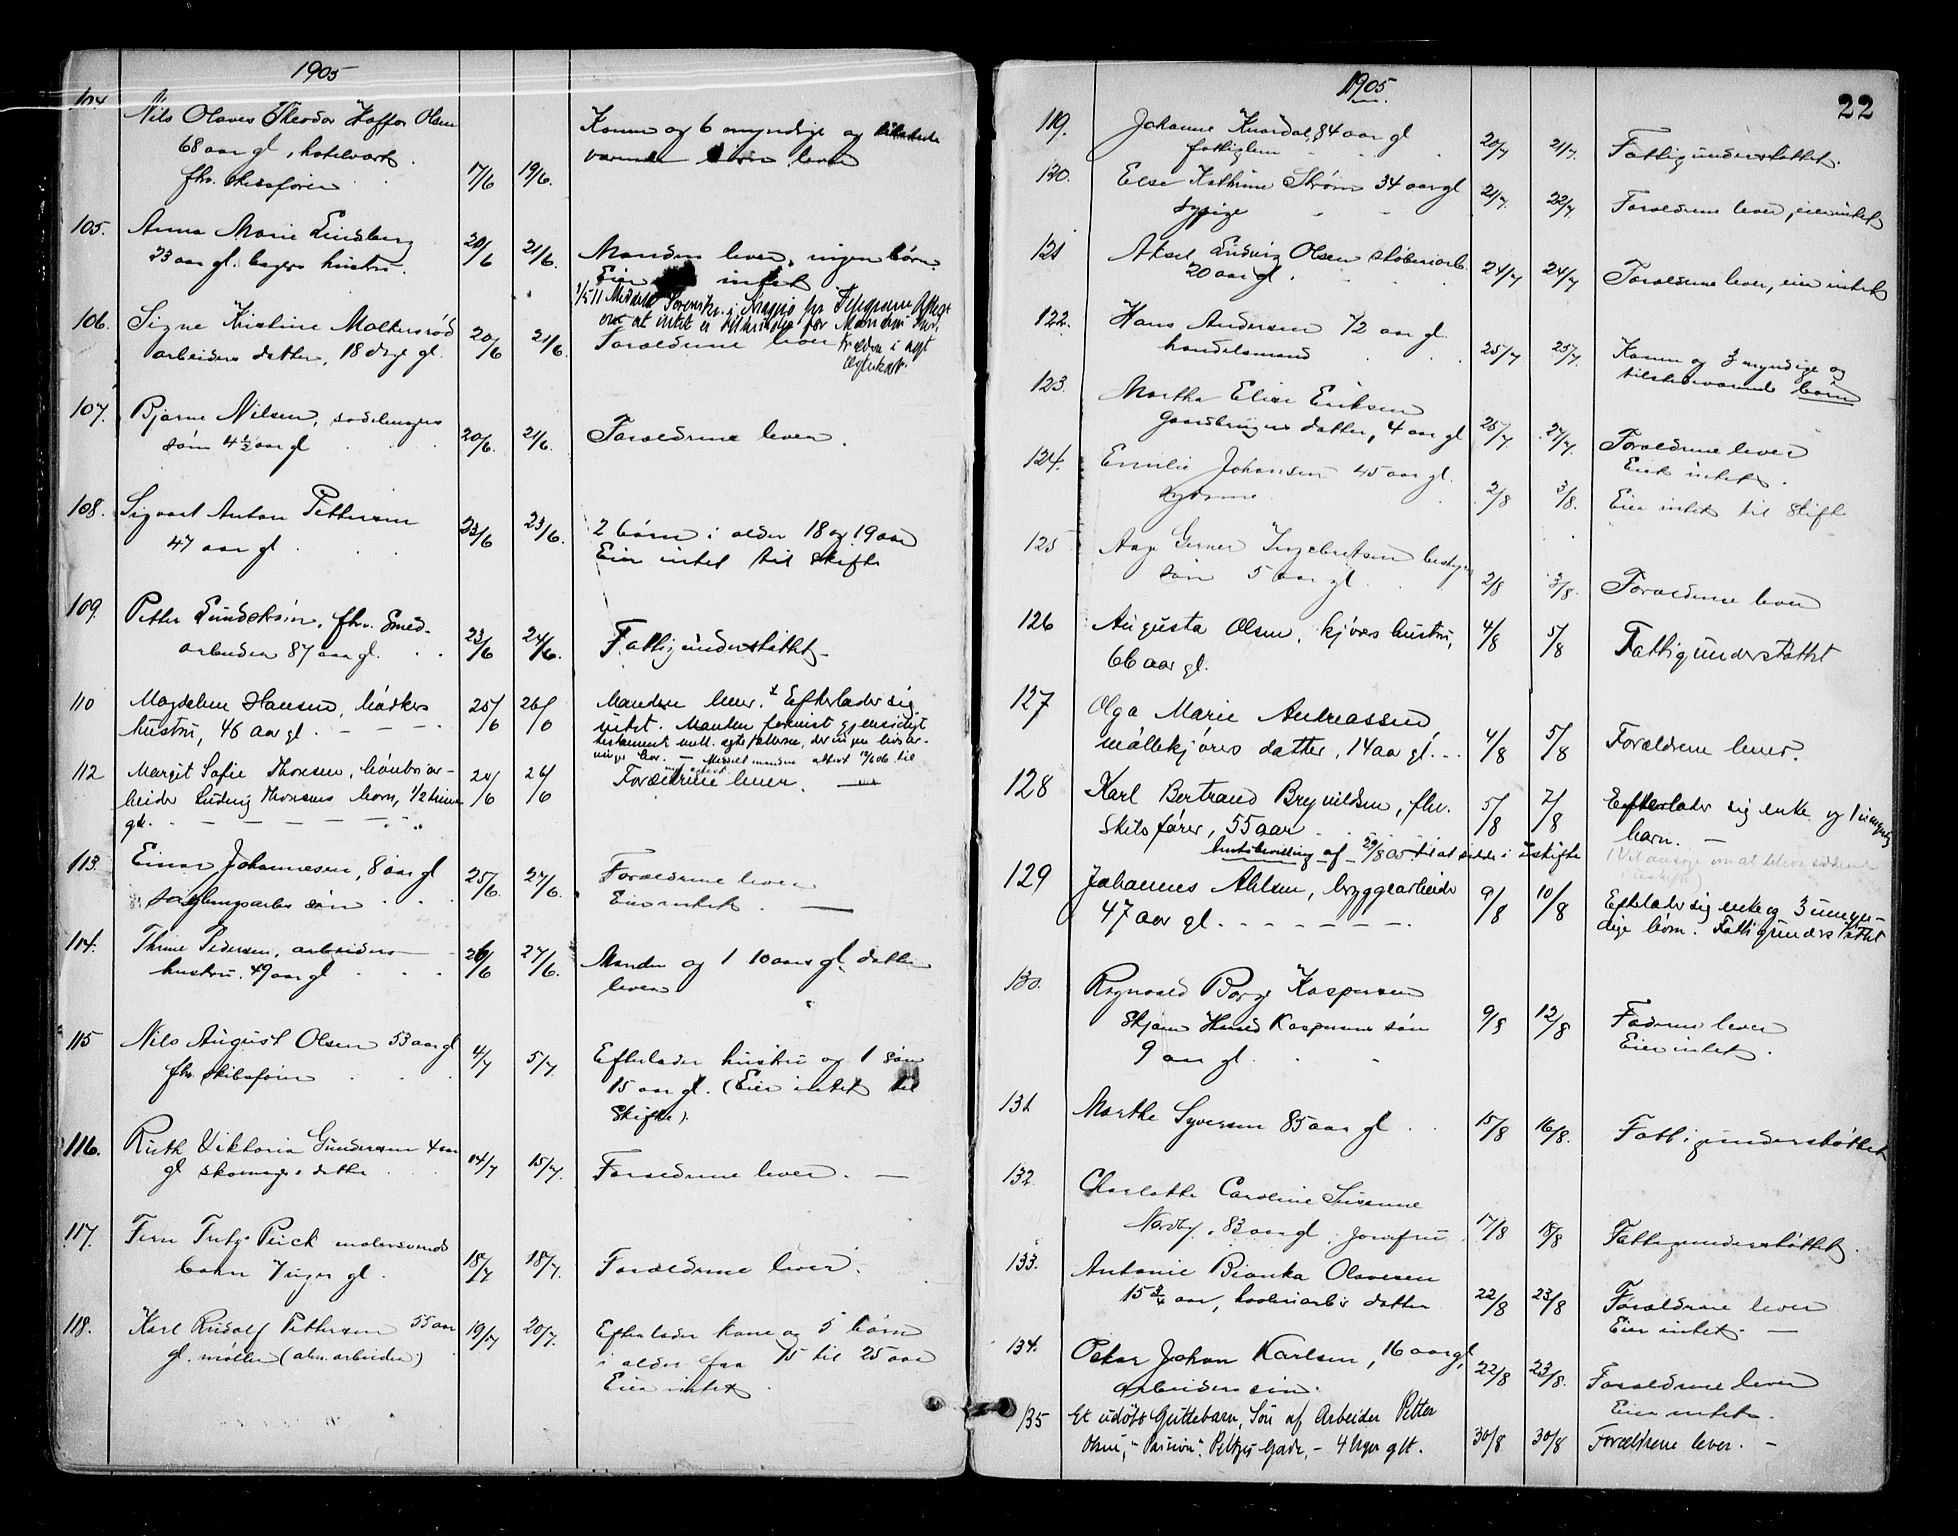 1905
104. Nils Olaves Theodor Olsen Kone og 6 umyndige og
68 aar gl, hotelvært. værende børn lever
fhv. skibsfører 17/6 19/6.
105. Anna Marie Lindberg 20/6 21/6. Manden lever, ingen børn.
23 aar gl. bagers hustru. Eier intet
at intet er for Manden
106. Signe Kristine 20/6 21/6. Forældrene lever
arbeiders datter, 18 dage gl.
107. Bjarne Nilsen, sadelmagers 20/6. 21/6. Forældrene lever.
søn 4 1/2 aar gl
108. Sigvart Anton Pettersen 23/6 23/6. 2 børn i alder 18 og 19 aar
47 aar gl Eier intet til skifte
109. Petter fhv. Smed- 23/6 24/6. Fattigunderstøttet
arbeider 87 aar gl.
110 Magdalene Hansen, bødkers 25/6 26/6 Manden lever. Efterlader sig
hustru, 46 aar gl. intet. Manden gjensidigt
testament mell. ægtefællerne, der ingen
112 Margit Sofie Thoresen, 24/6 26/6 Forældrene lever.
beider Ludvig Thoresens barn, 1/2 time
gl.
113. Einar Johannesen, 8 aar gl 25/6. 27/6. Forældrene lever
søn Eier intet.
114. Thrine Pedersen, arbeiders 26/6 27/6. Manden og 1 10 aars gl. datter
hustru. 49 aar gl lever
115 Nils August Olsen 53 aar gl 4/7 5/7. Efterlader hustru og 1 søn
fhv. skibsfører 15 aar gl. (Eier intet til
Skifte).
116. Ruth Viktoria Gundersen 4 aar 14/7 15/7. Forældrene lever.
gl skomagers datter
117. Fritz Peick malersvends 18/7 18/7. Forældrene lever.
barn 7 uger gl.
118. Karl Rudolf Pettersen 55 aar 19/7 20/7. Efterlader kone og 5 børn
gl. møller (alm. arbeider) i alder fra 15 til 25 aar
Eier intet.
1905.
22
119. Johanne 84 aar gl 20/7 21/7. Fattigunderstøttet.
fattiglem
120. Else Kathrine Strøm 34 aar gl 21/7. 22/7. Forældrene lever, eier intet
sypige
121 Aksel Ludvig Olsen støberiarb. 24/7 24/7 Forældrene lever, eier intet
20 aar gl.
122. Hans Andersen 72 aar gl. 25/7 25/7. Kone og 3 myndige og
handelsmand tilstedeværende børn
123. Martha Elise Eriksen
Gaardbrugers datter, 4 aar gl 25/7 27/7. Forældrene lever
Eier intet.
124. Emilie Johansen 45 aar gl. 2/8 3/8. Eier intet til skifte
125 Aage Gerner Ingebretsen
søn 5 aar gl. 2/8 3/8. Forældrene lever
126 Augusta Olsen, kjørers hustru, 4/8 5/8 Fattigunderstøttet
66 aar gl.
127 Olga Marie Andreassen
møllekjørers datter, 14 aar gl. 4/8 5/8 Forældrene lever.
128 Karl Bertrand Brynildsen, fhv. 5/8 7/8 Efterlader sig enke og 1 umyndig
Skibsfører, 55 aar barn.
af 29/8 05 til at sidde i uskifte
129 Johannes Ahlsen, bryggearbeider 9/8 10/8 Efterlader sig enke og 3 umyn-
47 aar gl. dige børn. Fattigunderstøttet
130. Ragnvald Borge Kaspersen
Kaspersens søn 9/8 12/8 Faderen lever
9 aar gl. Eier intet.
131 Marthe Syversen 85 aar gl 15/8 16/8. Fattigunderstøttet
132. Charlotte Caroline Susanne
Nordby, 83 aar gl. jomfru 17/8 18/8 Fattigunderstøttet.
133. Antonie Bianka Olavesen
15 3/4 aar, datter 22/8 23/8 Forældrene lever
Eier intet.
134. Oskar Johan Karlsen, 16 aar gl,
arbeiders søn. 22/8 23/8. Forældrene lever
Eier intet.
135 Et udøbt Guttebarn, Søn af Arbeider Petter
Gade, 4 Uger glt. 30/8 30/8 Forældrene lever.